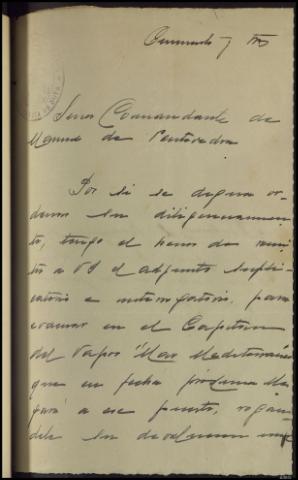 Señor Comandante de
Marina de Pontevedra
Por si se digna or-
denar su diligenciamien-
to, tengo el honor de remi-
tir a VS el adjunto supli-
catorio e interrogatorio, para
evacuar en el Capitan
del vapor "Mar Mediterráneo"
que en fecha próxima lle-
gará a ese puerto, rogan-
dole su devolucion